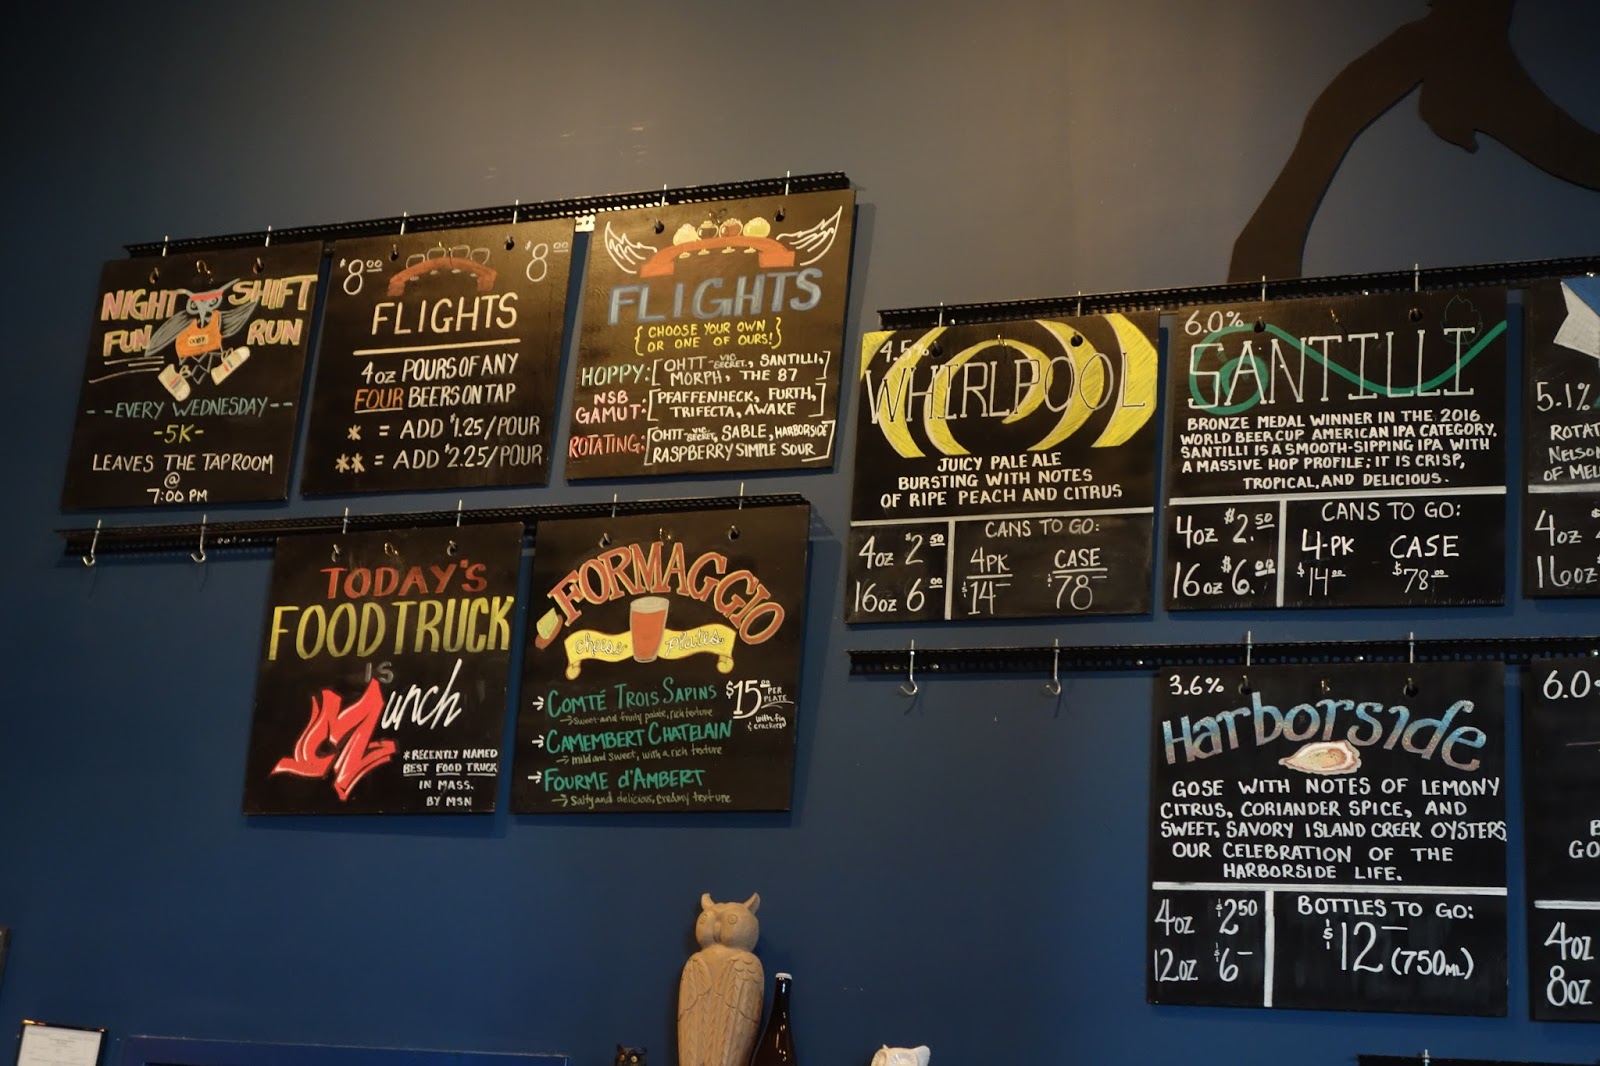 NIGHT SHIFT
FUN RUN
--EVERY WEDNESDAY--
-5K-
LEAVES THE TAPROOM
@
7:00 PM
$8.00 $8.00
FLIGHTS
4oz POURS OF ANY
FOUR BEERS ON TAP
* = ADD $1.25/POUR
** = ADD $2.25/POUR
FLIGHTS
{CHOOSE YOUR OWN
OR ONE OF OURS!}
HOPPY: [OHTT-VIC SECRET, SANTILLI,
MORPH, THE 87]
NSB
GAMUT: [PFAFFENHECK, FURTH,
TRIFECTA, AWAKE]
ROTATING: [OHTT-VIC SECRET, SABLE, HARBORSIDE
RASPBERRY SIMPLE SOUR]
TODAY'S
FOOD TRUCK
IS
Munch
*RECENTLY NAMED
BEST FOOD TRUCK
IN MASS.
BY MSN
FORMAGGIO
cheese plates
→ COMTÉ TROIS SAPINS
→ Sweet and fruity palate, rich texture
→ CAMEMBERT CHATELAIN
→ mild and sweet, with a rich texture
→ FOURME d'AMBERT
→ Salty and delicious, creamy texture
$15.00 PER
PLATE
with fig
crackers
4.5%
WHIRLPOOL
JUICY PALE ALE
BURSTING WITH NOTES
OF RIPE PEACH AND CITRUS
4oz $2.50
16oz 6.00
CANS TO GO:
4PK CASE
$14- $78-
6.0%
SANTILLI
BRONZE MEDAL WINNER IN THE 2016
WORLD BEER CUP AMERICAN IPA CATEGORY,
SANTILLI IS A SMOOTH-SIPPING IPA WITH
A MASSIVE HOP PROFILE; IT IS CRISP,
TROPICAL, AND DELICIOUS.
4oz $2.50
16oz $6.00
CANS TO GO:
4-PK CASE
$14.00 $78.00
5.1%
ROTAT
NELSO
OF MEL
4oz
16oz
3.6%
Harborside
GOSE WITH NOTES OF LEMONY
CITRUS, CORIANDER SPICE, AND
SWEET, SAVORY ISLAND CREEK OYSTERS.
OUR CELEBRATION OF THE
HARBORSIDE LIFE.
4oz $2.50
12oz $6-
BOTTLES TO GO:
$12- (750ML)
6.0
GO
4oz
8oz